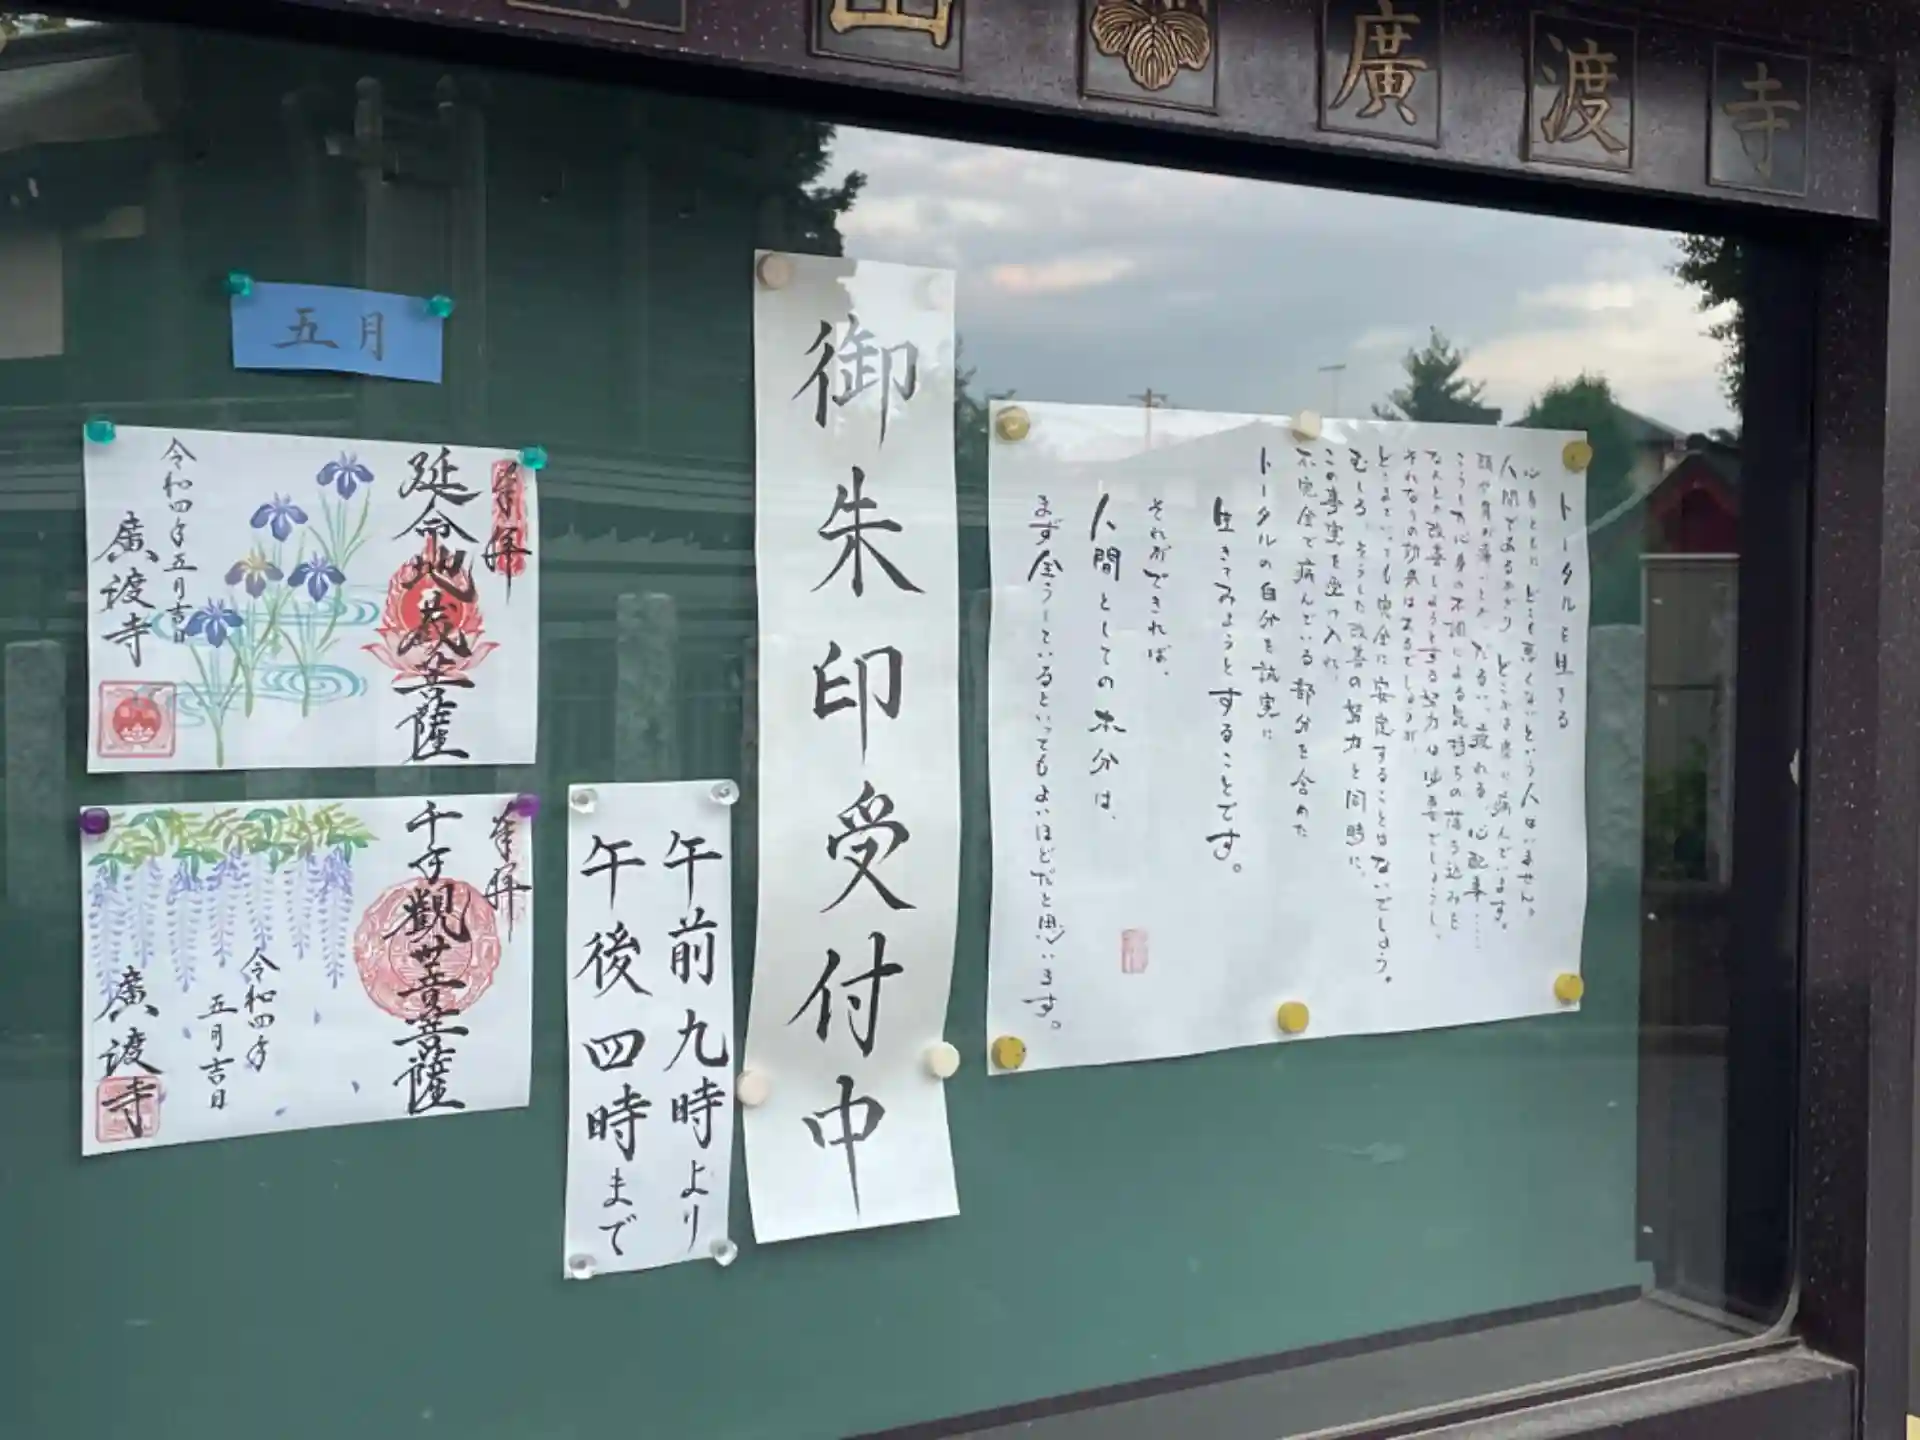 山 廣渡寺
五月
奉拝
延命地蔵菩薩
令和四年五月吉日
廣渡寺
奉拝
千手観世音菩薩
令和四年
五月吉日
廣渡寺
午前九時より
午後四時まで
御朱印受付中
トータルを生きる
心身ともに、どこも悪くないという人はいません。
人間であるかぎり、どこかは常に病んでいます。
頭や肩が痛いとか、だるい、疲れる、心配事……
こうした心身の不調による気持ちの落ち込みを
なんとか改善しようとする努力は必要でしょうし、
それなりの効果はあるでしょうが、
だからといっても完全に安定することはないでしょう。
むしろ、そうした改善の努力と同時に、
この事実を受け入れ、
不完全で病んでいる部分を含めた
トータルの自分を誠実に
生きてみようとすることです。
それができれば、
人間としての本分は、
まず全うしているといってもよいほどだと思います。